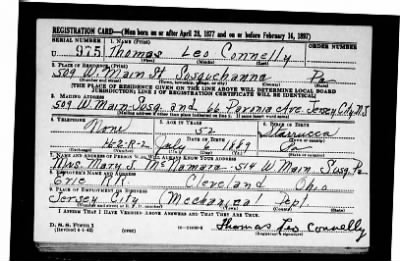 REGISTRATION CARD—(Men born on or after April 28, 1877 and on or before February 16, 1897)
SERIAL NUMBER 1. NAME (Print)
U 975 Thomas Leo Connelly
(First) (Middle) (Last)
2. PLACE OF RESIDENCE (Print)
509 W. Main St Susquehanna Pa
[THE PLACE OF RESIDENCE GIVEN ON THE LINE ABOVE WILL DETERMINE LOCAL BOARD
JURISDICTION; LINE 2 OF REGISTRATION CERTIFICATE WILL BE IDENTICAL]
3. MAILING ADDRESS
509 W. Main-Susq. and 66 Pavonia Ave. Jersey City N.J.
[Mailing address if other than place indicated on line 2. If same insert word same]
4. TELEPHONE 5. AGE IN YEARS 6. PLACE OF BIRTH
None 52 Starrucca
DATE OF BIRTH
462-R-2 July 6 1889 Pa
7. NAME AND ADDRESS OF PERSON WHO WILL ALWAYS KNOW YOUR ADDRESS
Mrs. Mary J. McNamara-514 W Main Susq Pa
8. EMPLOYER'S NAME AND ADDRESS
Erie R.R. Cleveland Ohio
9. PLACE OF EMPLOYMENT OR BUSINESS
Jersey City (Mechanical Dept.
I AFFIRM THAT I HAVE VERIFIED ABOVE ANSWERS AND THAT THEY ARE TRUE.
D. S. S. FORM 1
Thomas Leo Connelly